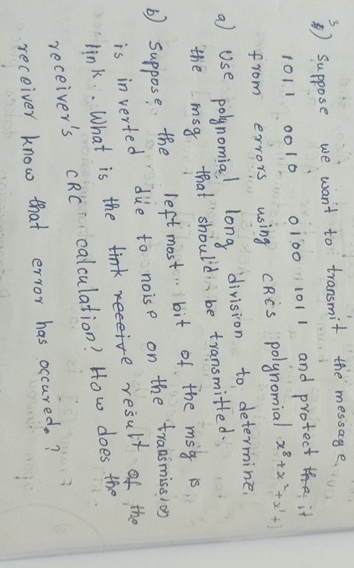 3) Suppose we want to transmit the message
1011 0010 0100 1011 and protect the it
from errors using CRCs polynomial x⁸+x²+x¹+1
a) Use polynomial long division to determine
the msg that should be transmitted.
b) Suppose the leftmost bit of the msg is
is inverted due to noise on the transmission
link. What is the tink receive result of the
receiver's CRC calculation? How does the
receiver know that error has occured.?